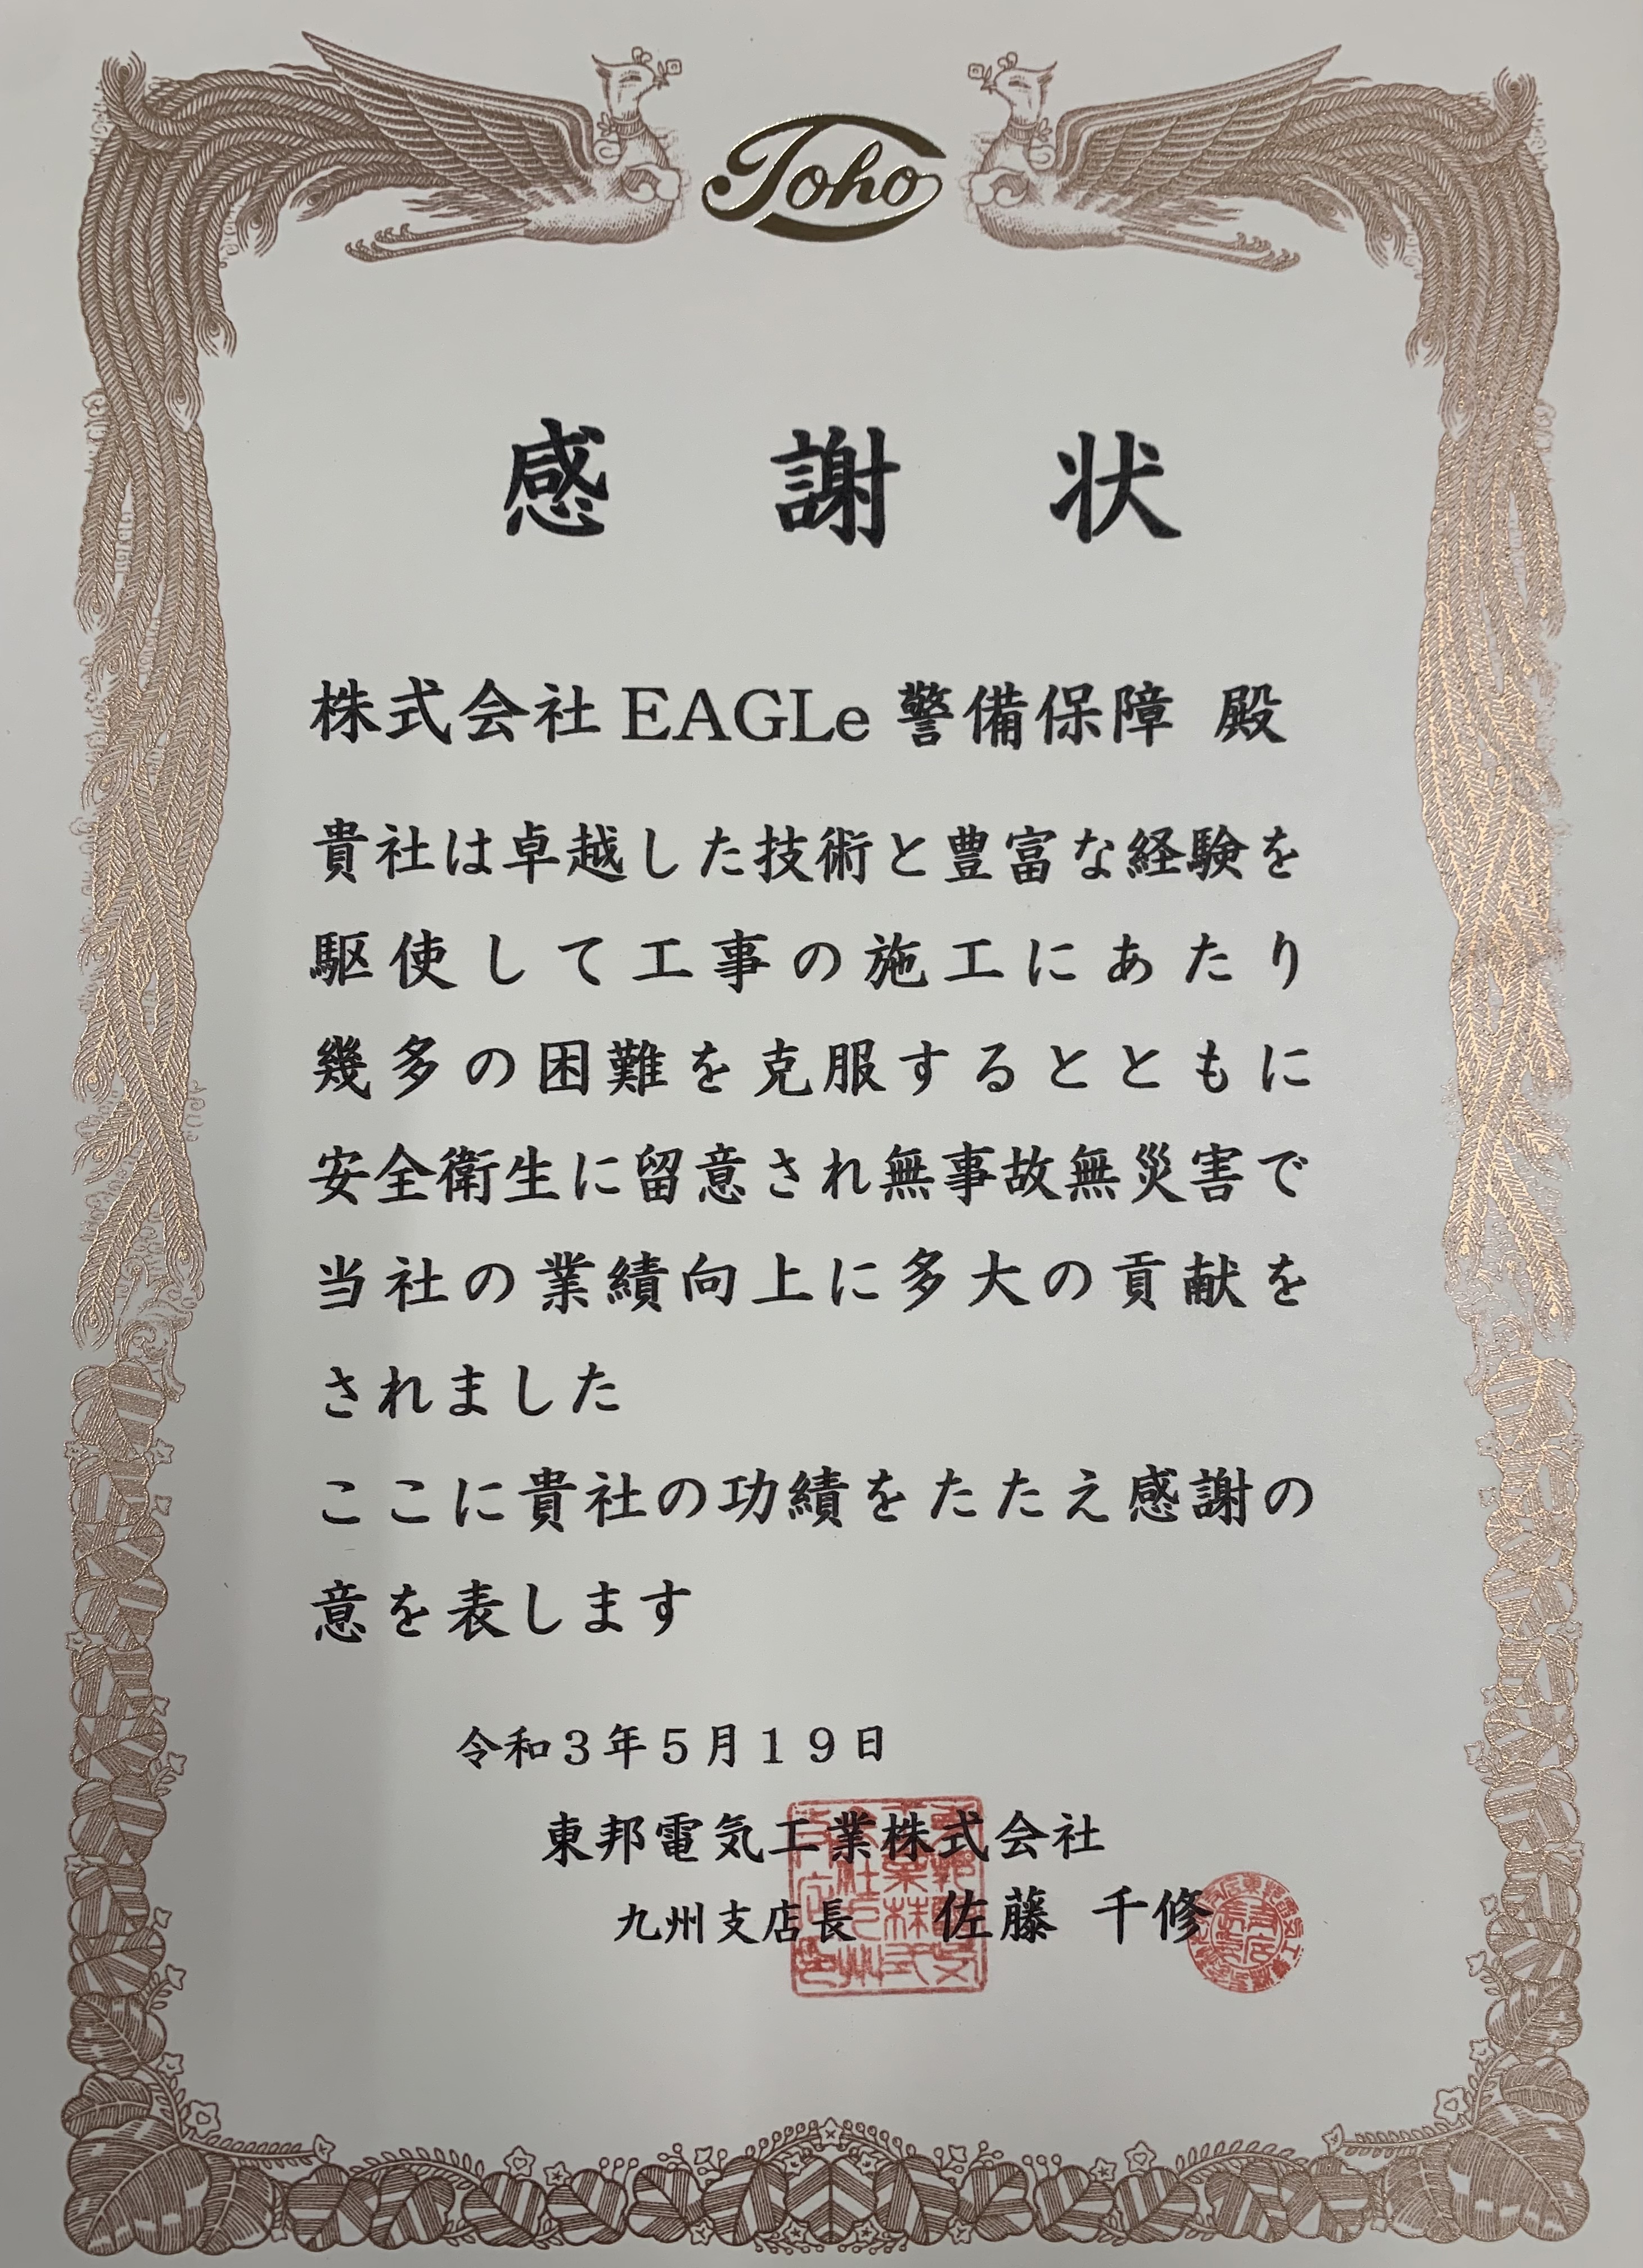 Toho
感謝状
株式会社EAGLe警備保障 殿
貴社は卓越した技術と豊富な経験を
駆使して工事の施工にあたり
幾多の困難を克服するとともに
安全衛生に留意され無事故無災害で
当社の業績向上に多大の貢献を
されました
ここに貴社の功績をたたえ感謝の
意を表します
令和3年5月19日
東邦電気工業株式会社
九州支店長 佐藤 千修